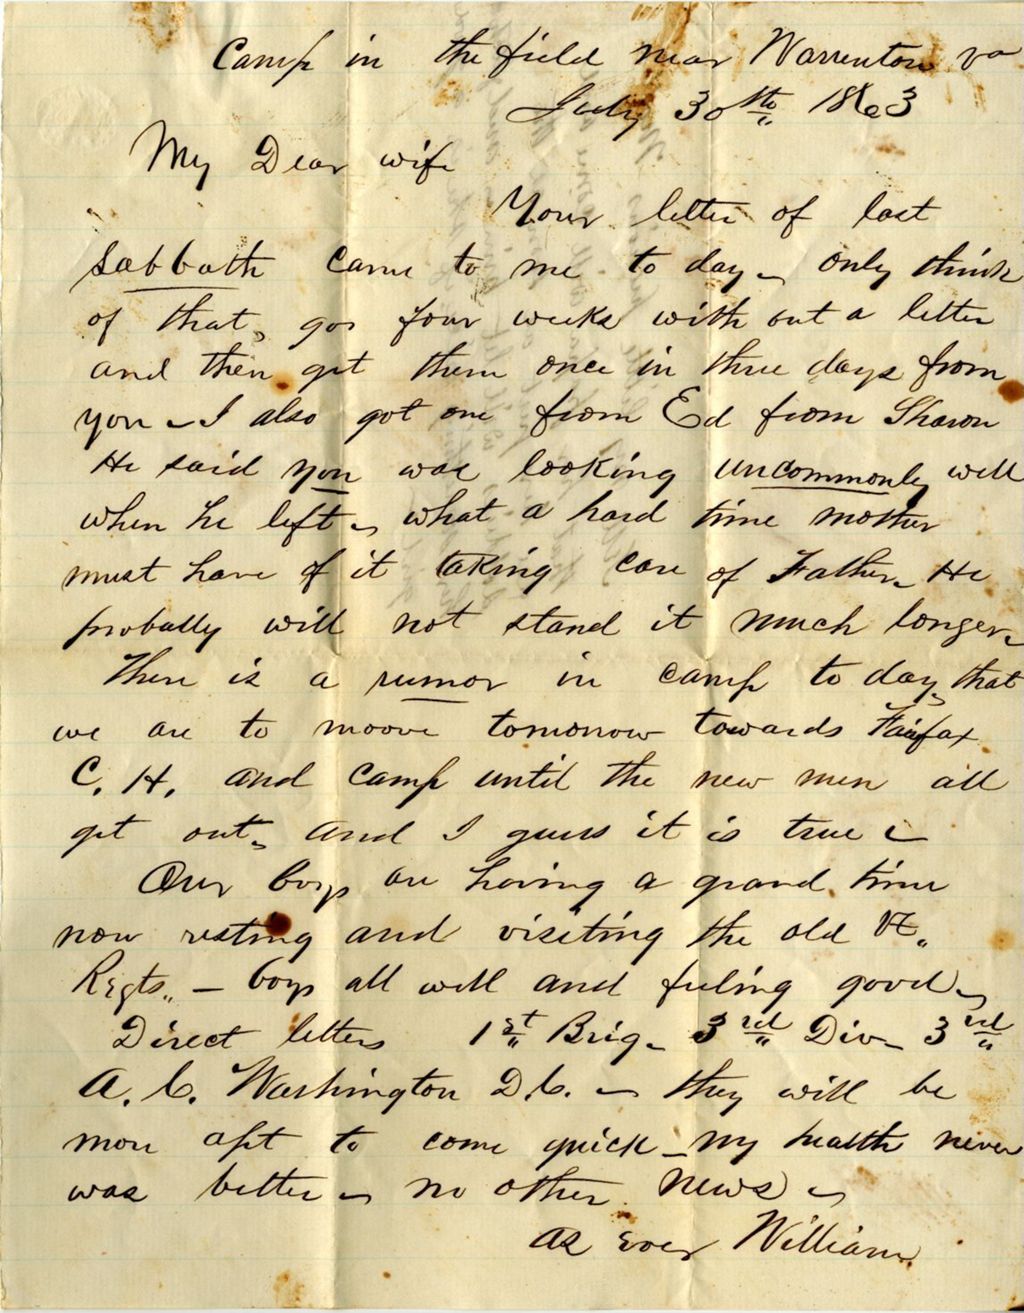 Camp in the field near Warrenton va
July 30th 1863
My Dear wife
Your letter of last
Sabbath came to me to day – only think
of that, go four weeks with out a letter
and then get them once in three days from
you – I also got one from Ed from Sharon
He said you was looking uncommonly well
when he left – what a hard time mother
must have of it taking care of Father – He
probally will not stand it much longer –
There is a rumor in camp to day, that
we are to moove tomorrow towards Fairfax
C. H. and camp until the new men all
get out – and I guess it is true –
Our boys are having a grand time
now resting and visiting the old Vt.
Regts. – boys all well and feeling good –
Direct letters 1st Brig – 3rd Div – 3rd
A. C. Washington D.C. – they will be
more apt to come quick – my health never
was better – no other news –
as ever William